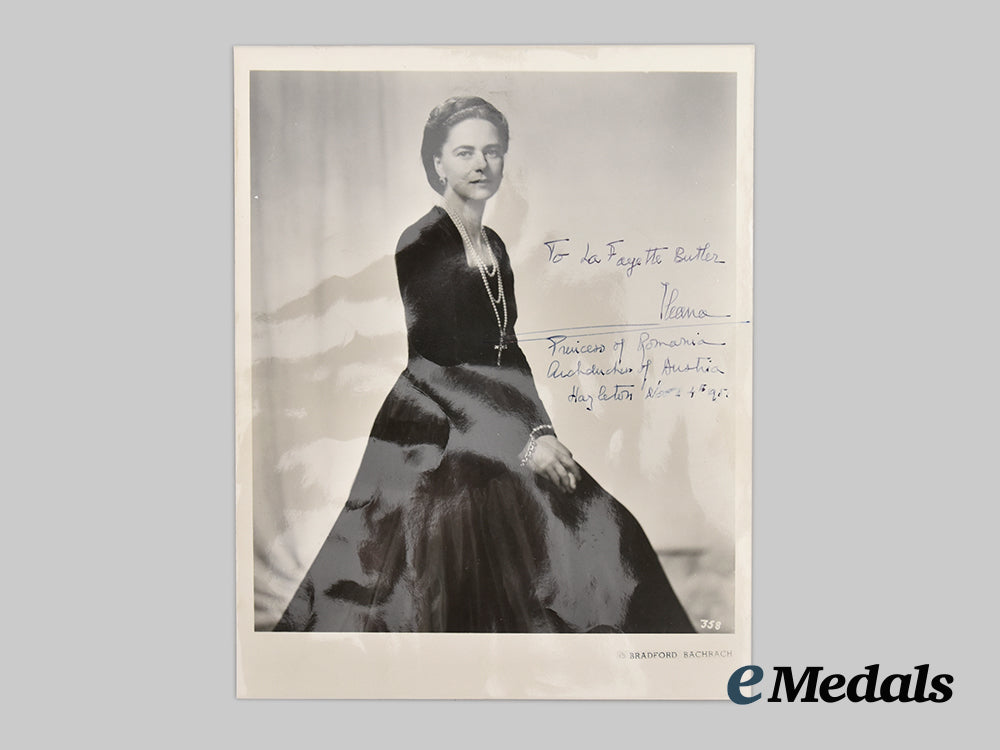 To La Fayette Butler
Ileana
Princess of Romania
Archduchess of Austria
Hazleton Nov. 4th
358
BRADFORD BACHRACH
eMedals